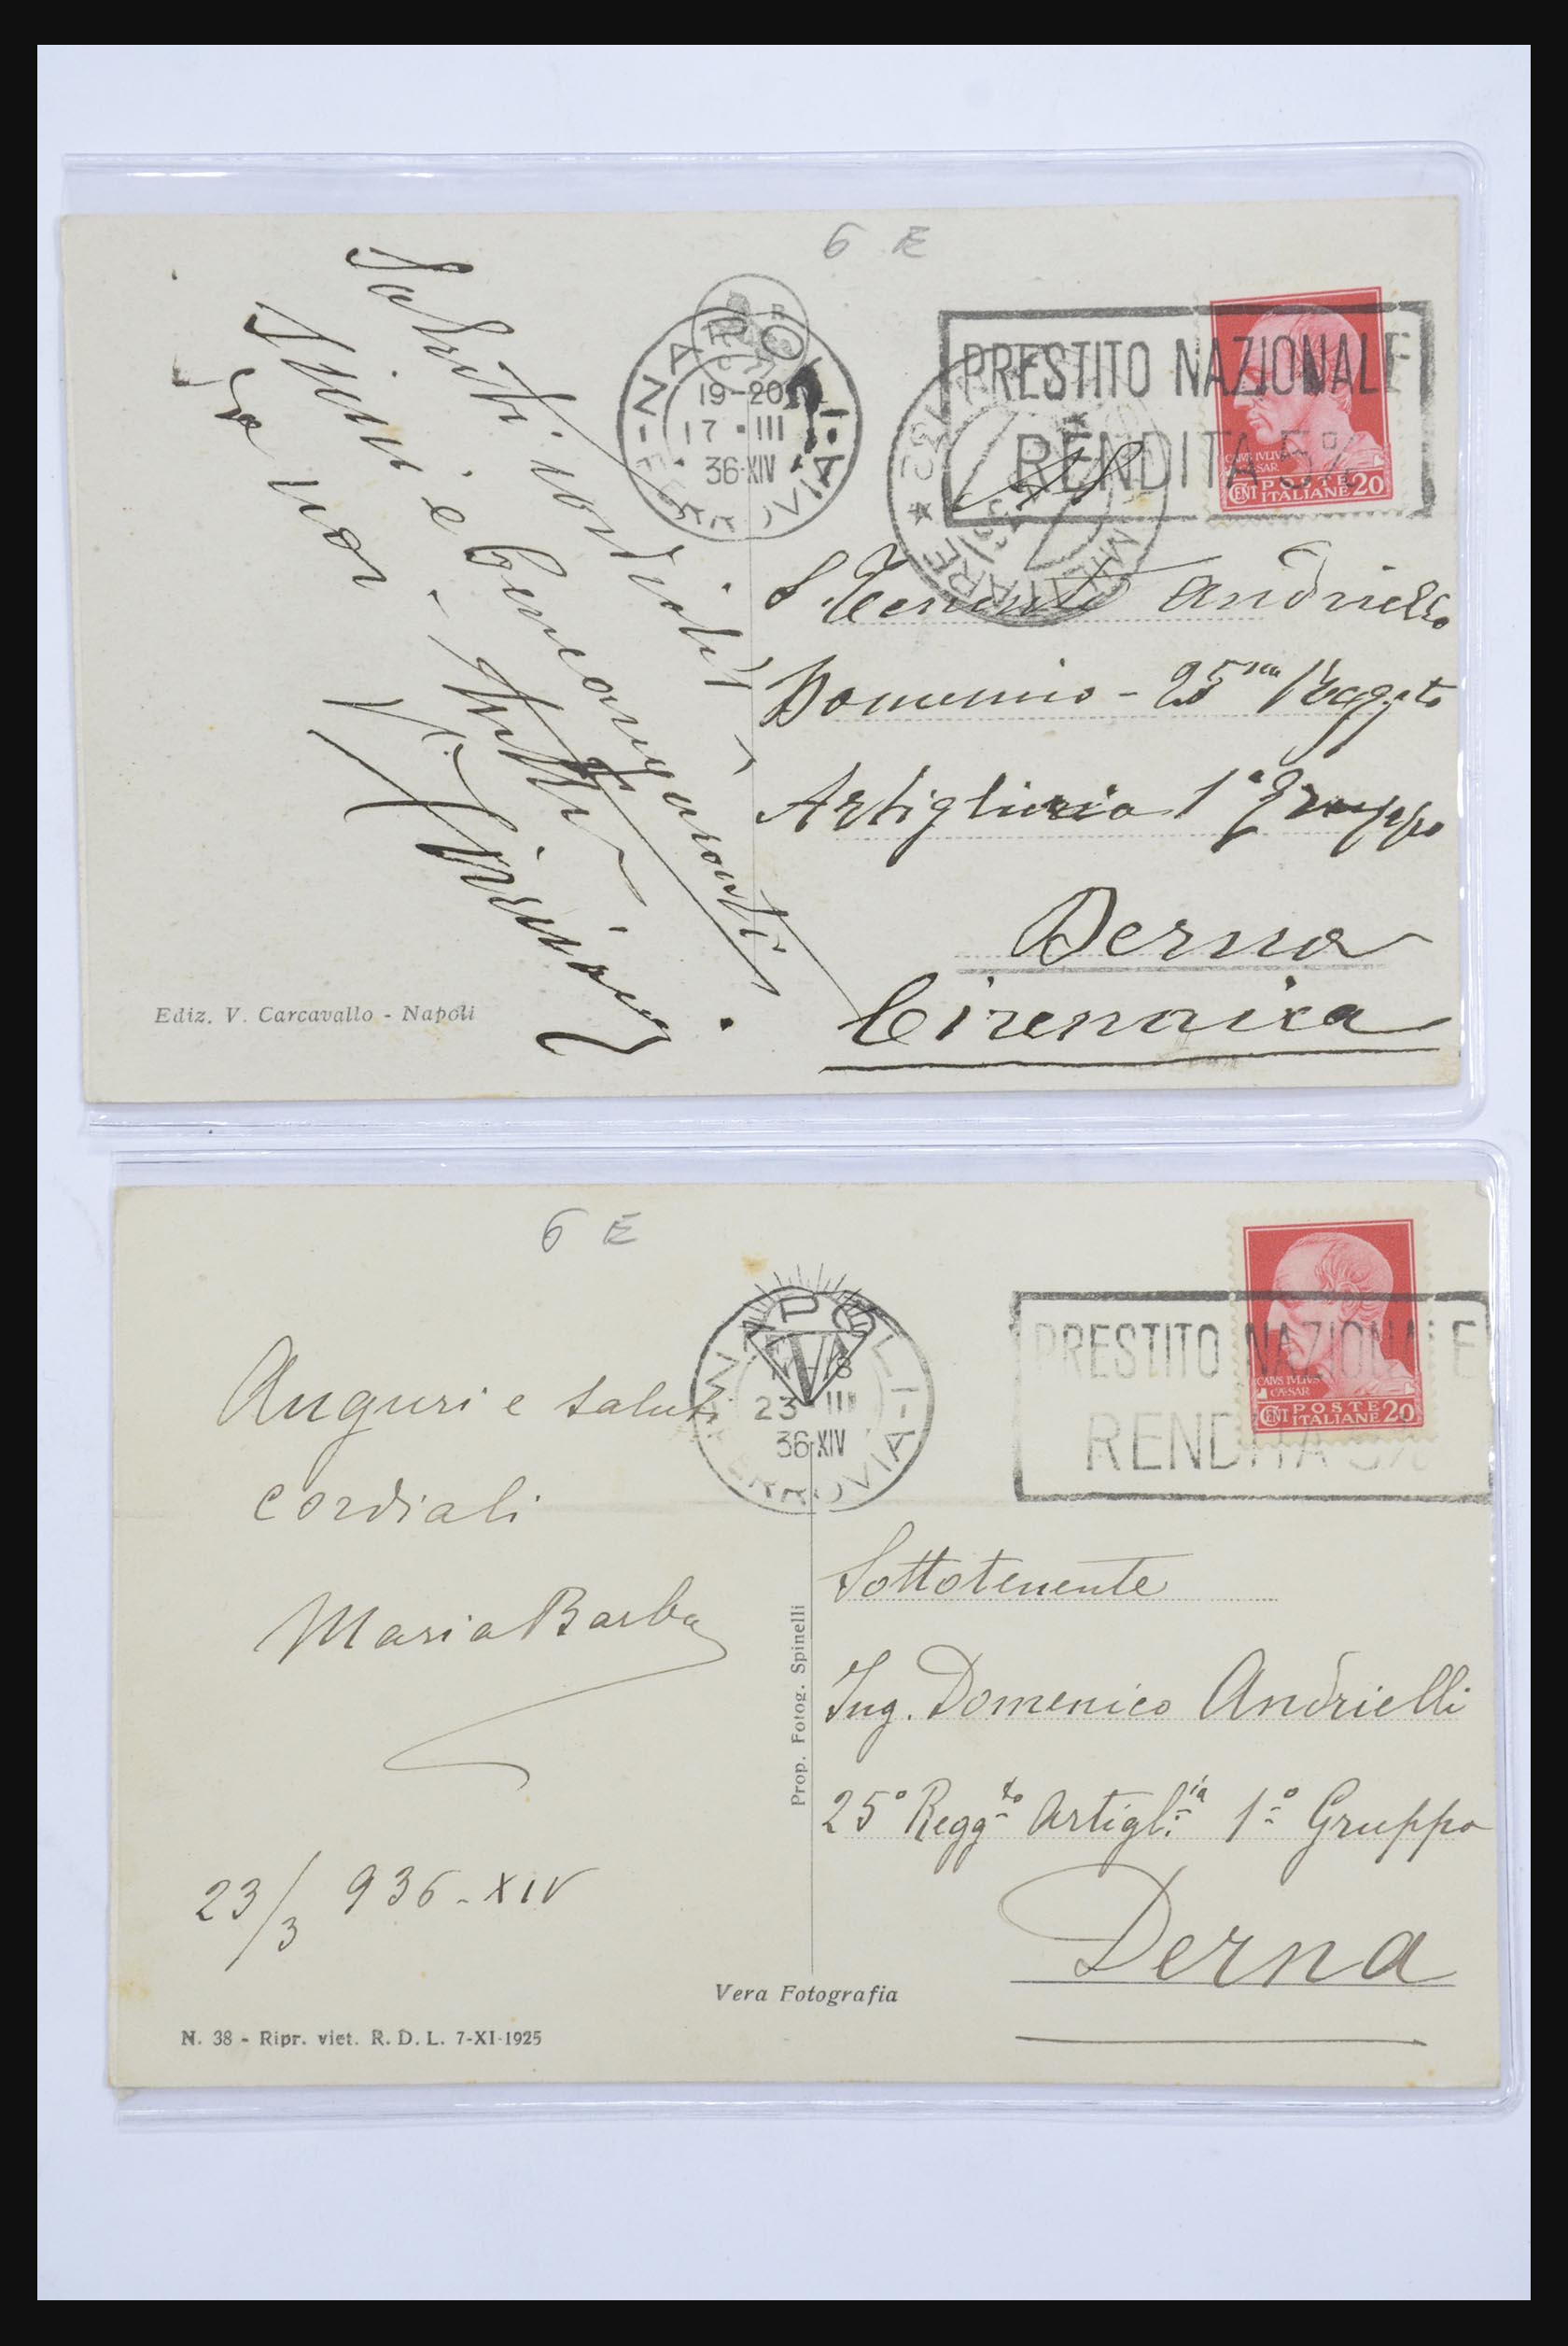 6 E
NAPOLI
FERROVIA
19-20
17 · III
36·XIV
PRESTITO NAZIONALE
RENDITA 5%
CAIVS IVLIVS
CAESAR
CENT POSTE ITALIANE 20
MILITARE
Saluti cordiali
e
da noi
S. Tenente Andriello
Domenico - 25mo Reggto
Artiglieria 1° Gruppo
Derna
Cirenaica
Ediz. V. Carcavallo - Napoli
6 E
NAPOLI
FERROVIA
23 III
36·XIV
PRESTITO NAZIONALE
RENDITA 5%
CAIVS IVLIVS
CAESAR
CENT POSTE ITALIANE 20
Auguri e saluti
cordiali
Maria Barba
23/3 936-XIV
Sottotenente
Ing. Domenico Andrielli
25° Reggto Artiglia 1° Gruppo
Derna
Prop. Fotog. Spinelli
Vera Fotografia
N. 38 - Ripr. viet. R. D. L. 7-XI-1925